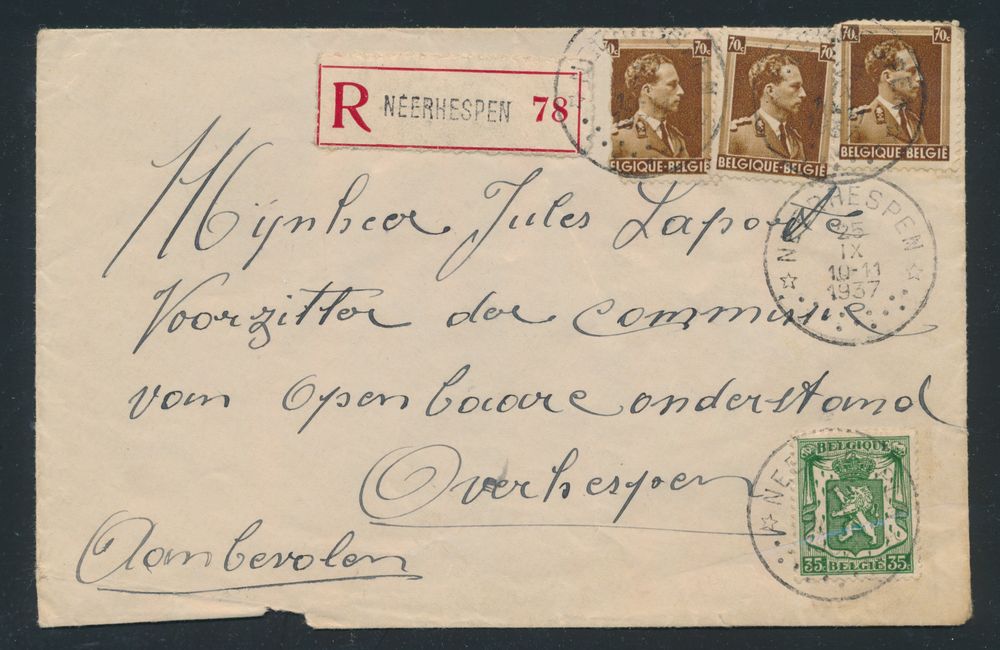 R NEERHESPEN 78
70c 70c
BELGIQUE-BELGIË
70c 70c
BELGIQUE-BELGIË
70c 70c
BELGIQUE-BELGIË
Mijnheer Jules Laporte
NEERHESPEN
25
IX
10-11
1937
Voorzitter der commissie
van openbaare onderstand
Overhespen
Aanbevolen
BELGIQUE
35c BELGIË 35c